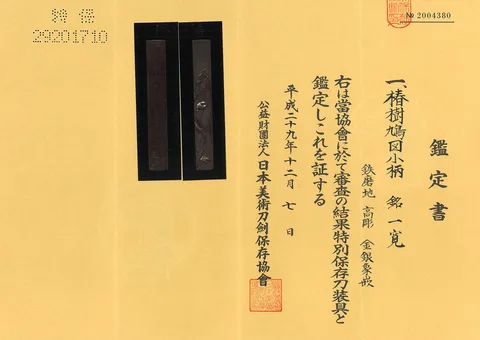 鑑定書
一、椿樹鳩図小柄 銘 一寛
鉄磨地 高彫 金銀象嵌
右は當協會に於て審査の結果特別保存刀装具と
鑑定しこれを証する
平成二十九年十二月 七 日
公益財團法人 日本美術刀劍保存協會
№ 2004380
特 保
29201710